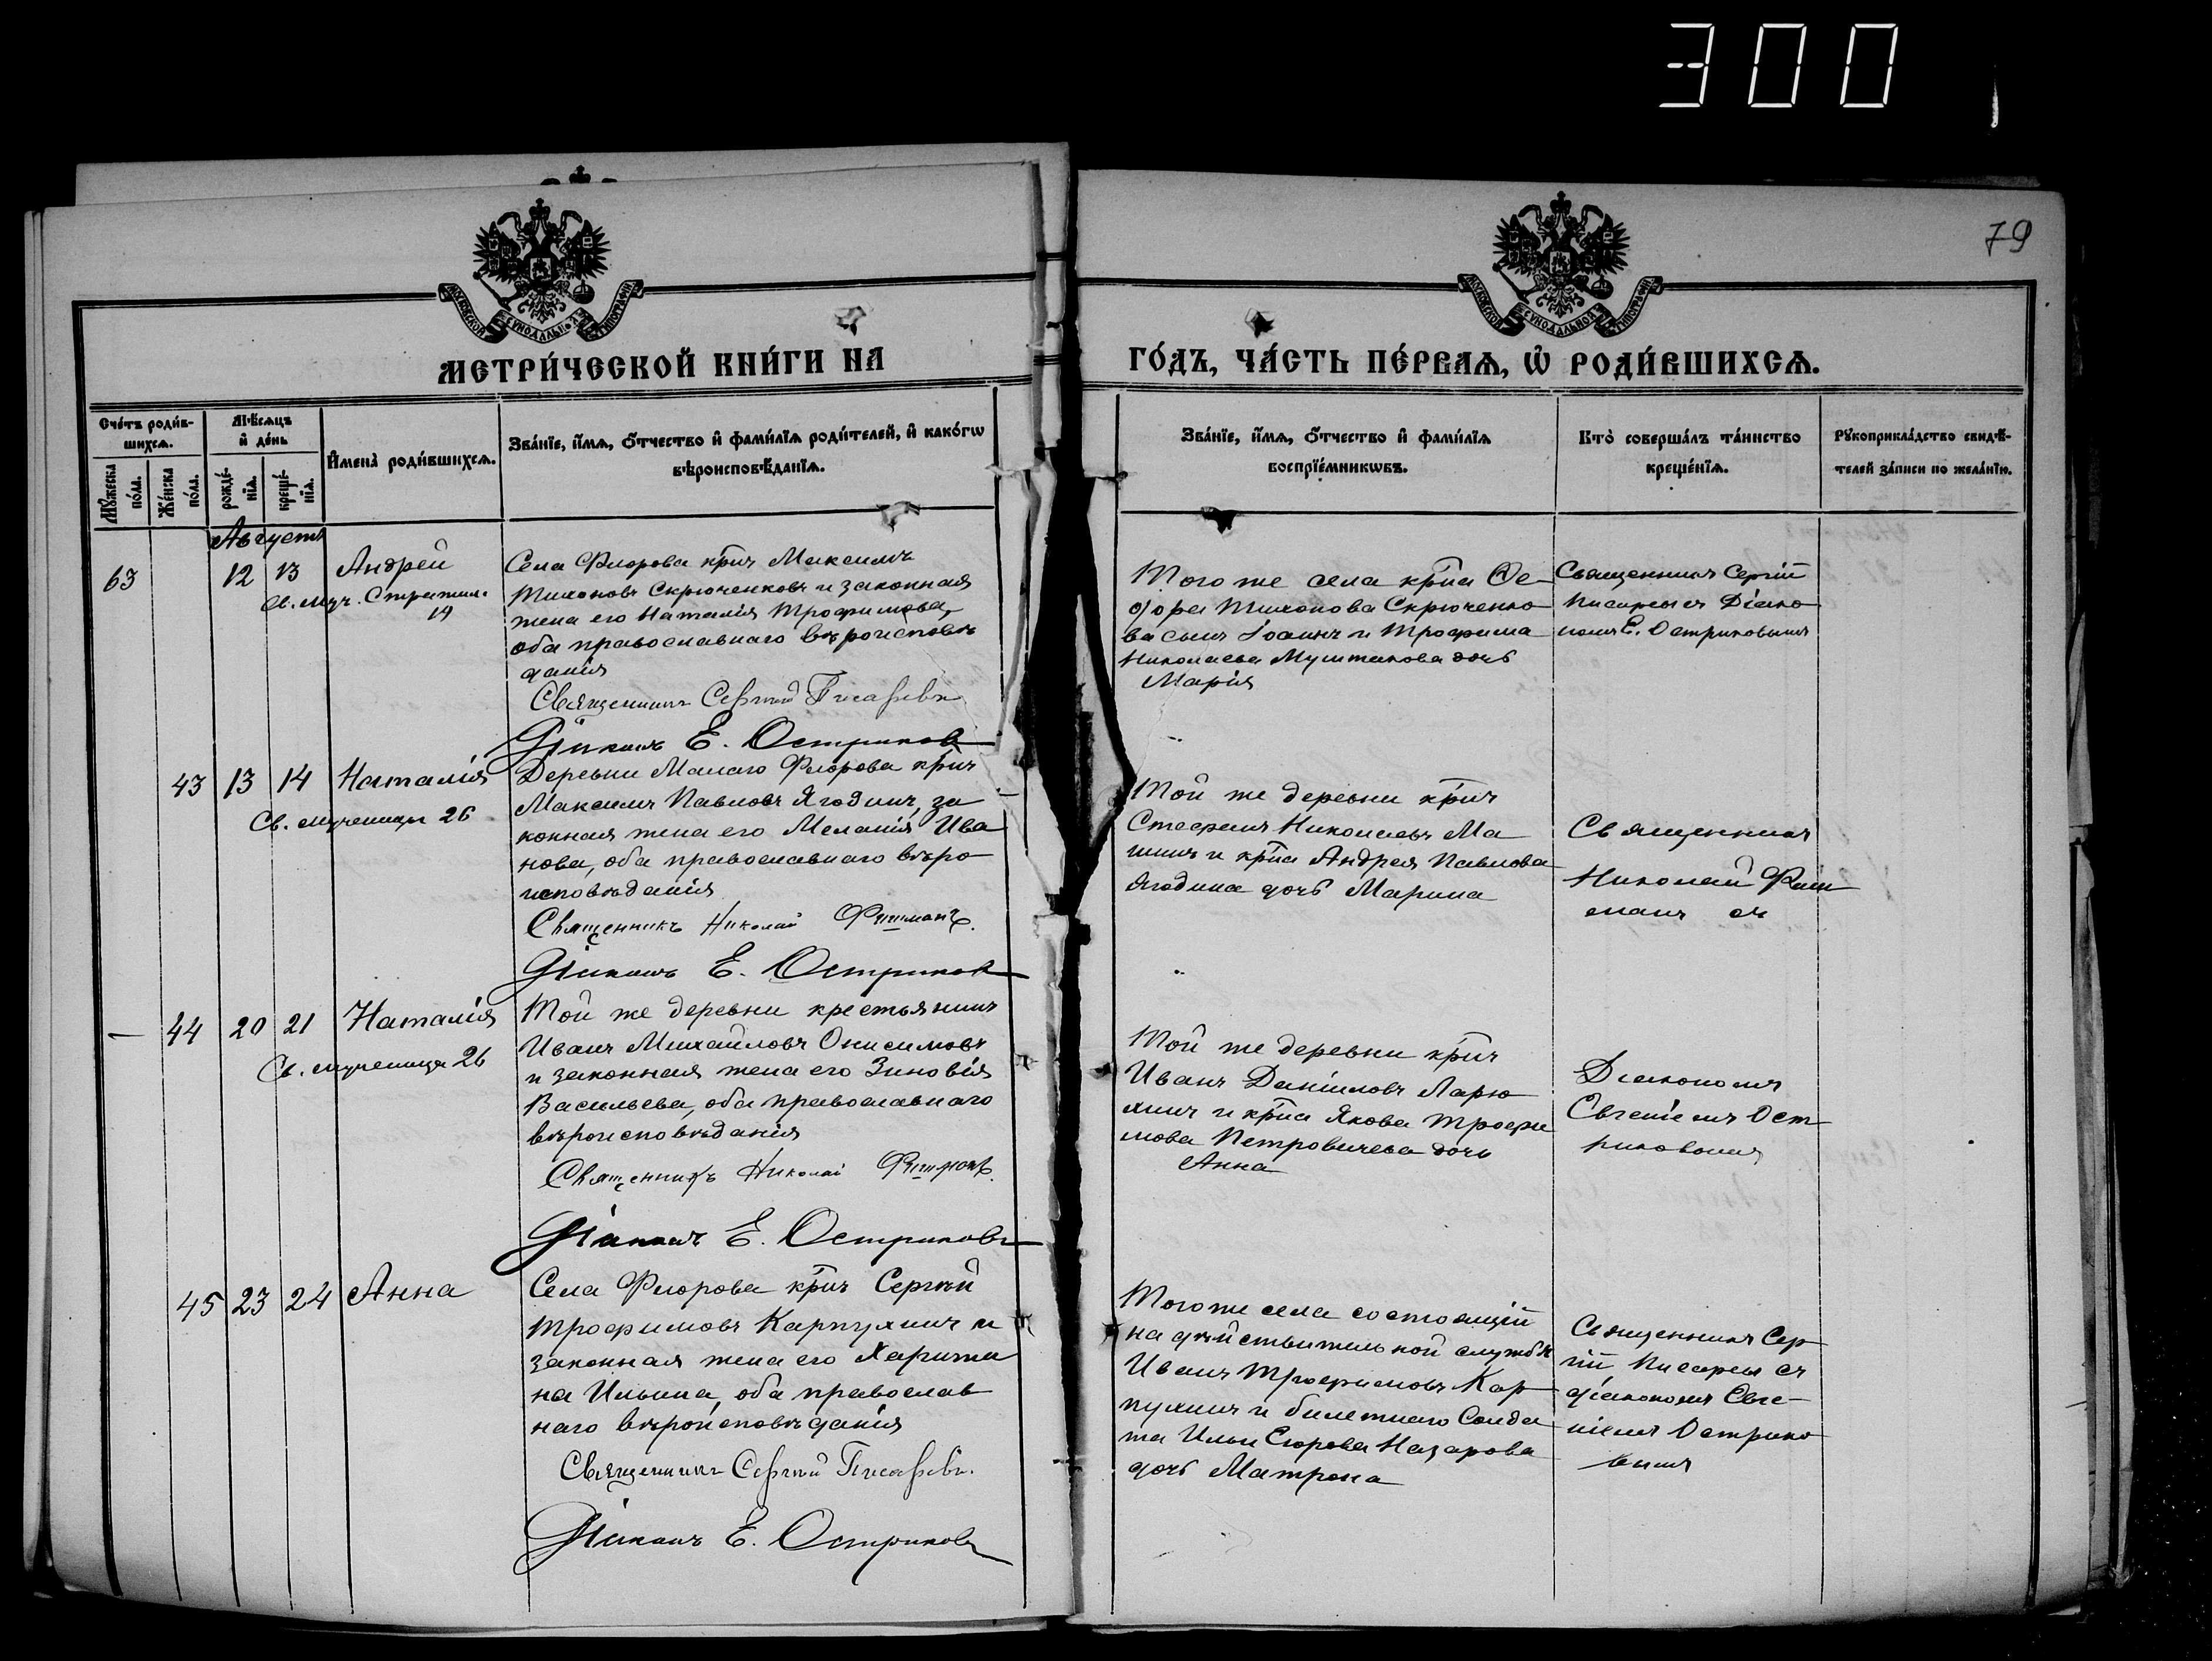 300
79
МОСКОВСКОЙ СѴНОДАЛЬНОЙ ТИПОГРАФІИ
МОСКОВСКОЙ СѴНОДАЛЬНОЙ ТИПОГРАФІИ
МЕТРИ́ЧЕСКОЙ КНИ́ГИ НА
ГО́ДЪ, ЧА́СТЬ ПЕ́РВАѦ, Ѡ҆ РОДИ́ВШИХСѦ.
Сче́тъ роди́в-
шихсѧ.
Мꙋ́жеска
по́ла.
Же́нска
по́ла.
Мѣ́сѧцъ
и҆ де́нь
рожде́-
нїѧ.
креще́-
нїѧ.
И҆мена̀ роди́вшихсѧ.
Зва́нїе, и҆́мѧ, ѻ҆́тчество и҆ фами́лїѧ роди́телей, и҆ како́гѡ
вѣроисповѣ́данїѧ.
Зва́нїе, и҆́мѧ, ѻ҆́тчество и҆ фами́лїѧ
воспрїе́мникѡвъ.
Кто̀ соверша́лъ та́инство
креще́нїѧ.
Рꙋкоприкла́дство свидѣ́-
телей за́писи по жела́нїю.
Августъ
63 12 13 Андрей
Св. муч. Стратил.
19
Села Флорова кр҃нъ Максимъ
Тихоновъ Скрюченковъ и законная
жена его Наталія Трофимова,
оба православнаго вѣроисповѣ
данія
Священникъ Сергій Писаревъ
Діаконъ Е. Остриков
Того же села кр҃на Ѳе-
дора Тихонова Скрюченко
ва сынъ Іоаннъ и Трофима
Николаева Муштакова дочь
Марія
Священникъ Сергій
Писаревъ съ Діако
номъ Е. Остриковымъ
43 13 14 Наталія
Св. мученицы 26
Деревни Малаго Флорова кр҃нъ
Максимъ Павловъ Ягодинъ, за
конная жена его Меланія Ива
нова, оба православнаго вѣро
исповѣданія
Священникъ Николай Фишманъ.
Діаконъ Е. Остриков
Той же деревни кр҃нъ
Стефанъ Николаевъ Ма
шинъ и кр҃на Андрея Павлова
Ягодина дочь Марина
Священникъ
Николай Фиш
манъ съ
44 20 21 Наталія
Св. мученицы 26
Той же деревни крестьянинъ
Иванъ Михайловъ Онисимовъ
и законная жена его Зиновія
Васильева, оба православнаго
вѣроисповѣданія
Священникъ Николай Фишманъ.
Діаконъ Е. Остриковъ
Той же деревни кр҃нъ
Иванъ Даніиловъ Ларю
хинъ и кр҃на Якова Трофи
мова Петровичева дочь
Анна
Діакономъ
Евгеніемъ Ост
риковымъ
45 23 24 Анна
Села Флорова кр҃нъ Сергѣй
Трофимовъ Карпухинъ и
законная жена его Харити
на Ильина, оба православ
наго вѣроисповѣданія
Священникъ Сергій Писаревъ.
Діаконъ Е. Остриков
Того же села состоящій
на дѣйствительной службѣ
Иванъ Трофимовъ Кар
пухинъ и билетнаго Солда
та Ильи Назарова
дочь Матрона
Священникъ Сер
гій Писаревъ съ
діакономъ Евге-
ніемъ Острико
вымъ